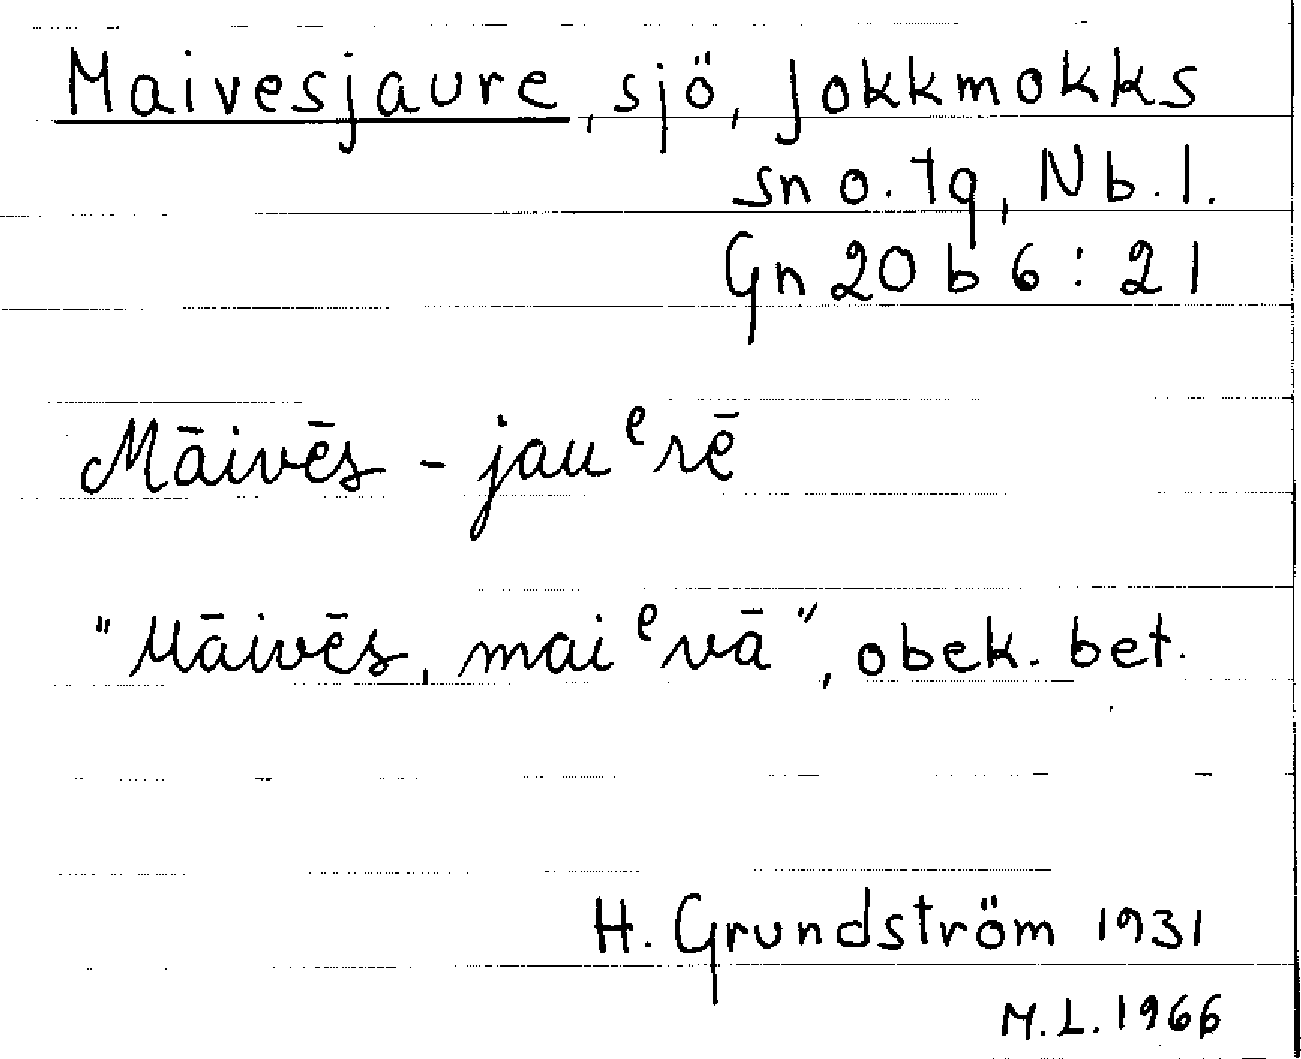 Maivesjaure, sjö, Jokkmokks
sn o. tg, Nb. l.
Gn 20 b 6 : 21
Māivēs - jauᵉrē
"Māivēs, maiᵉvā", obek. bet.
H. Grundström 1931
M.L. 1966